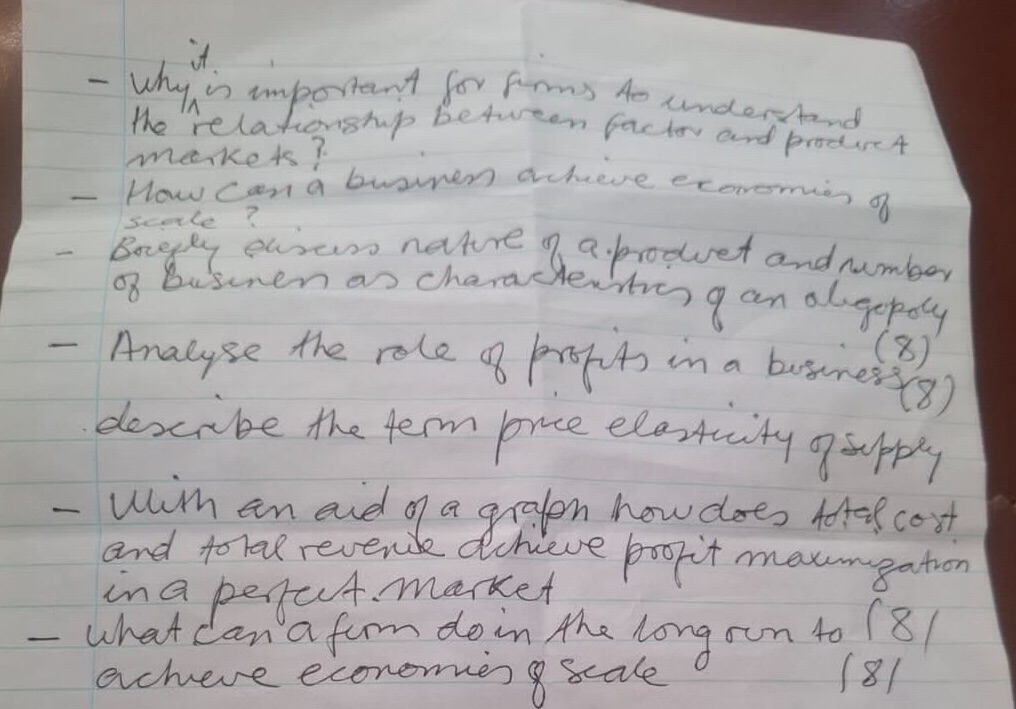 - Why it is important for firms to understand
the relationship between factor and product
markets?
- How can a business achieve economies of
scale?
- Briefly discuss nature of a product and number
of business as characteristics of an oligopoly
(8)
- Analyse the role of profits in a business (8)
describe the term price elasticity of supply
- With an aid of a graph how does total cost
and total revenue achieve profit maximization
in a perfect market
- What can a firm do in the long run to (8)
achieve economies of scale (8)